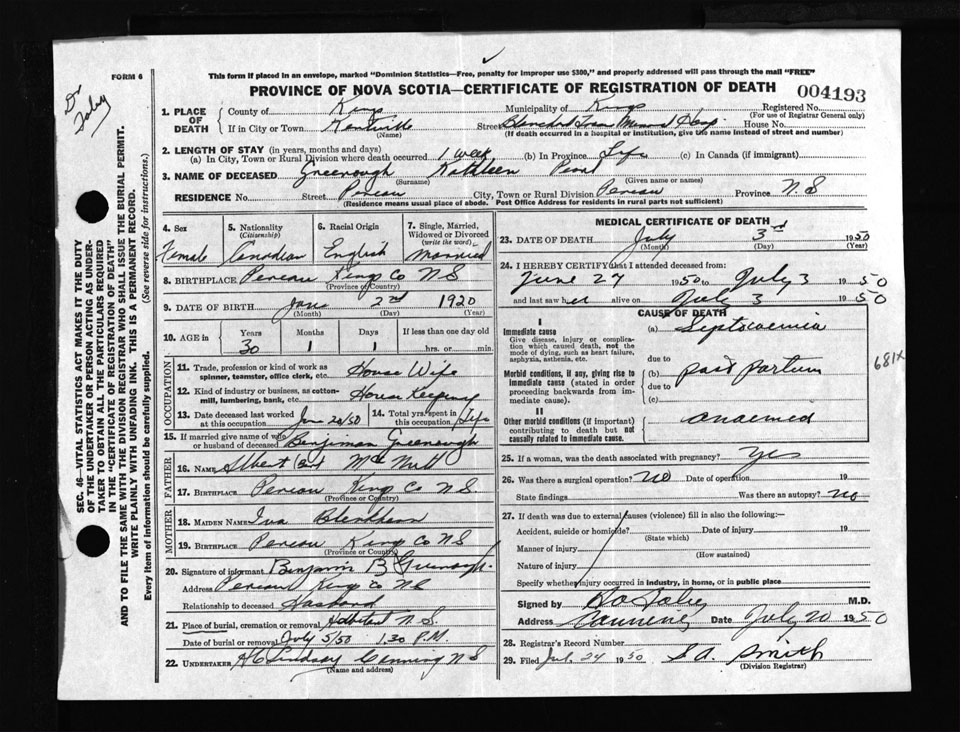 FORM 6
Dr Foley
This form if placed in an envelope, marked "Dominion Statistics—Free, penalty for improper use $300," and properly addressed will pass through the mail "FREE"
PROVINCE OF NOVA SCOTIA—CERTIFICATE OF REGISTRATION OF DEATH
004193
1. PLACE OF DEATH County of Kings Municipality of Kings Registered No.
(For use of Registrar General only)
If in City or Town Kentville Street Blanchard Hosp House No.
(Name) (If death occurred in a hospital or institution, give the name instead of street and number)
2. LENGTH OF STAY (in years, months and days)
(a) In City, Town or Rural Division where death occurred 1 week (b) In Province Life (c) In Canada (if immigrant)
3. NAME OF DECEASED Greenough Kathleen Pearl
(Surname) (Given name or names)
RESIDENCE No. Street Pereau City, Town or Rural Division Pereau Province N.S
(Residence means usual place of abode. Post Office Address for residents in rural parts not sufficient)
4. Sex Female
5. Nationality (Citizenship) Canadian
6. Racial Origin English
7. Single, Married, Widowed or Divorced (write the word) Married
8. BIRTHPLACE Pereau Kings Co N S
(Province or Country)
9. DATE OF BIRTH Jan 2nd 1920
(Month) (Day) (Year)
10. AGE in Years 30 Months 1 Days 1 If less than one day old hrs. or min.
OCCUPATION
11. Trade, profession or kind of work as spinner, teamster, office clerk, etc. House Wife
12. Kind of industry or business, as cotton-mill, lumbering, bank, etc. House Keeping
13. Date deceased last worked at this occupation June 26/50 14. Total yrs. spent in this occupation Life
15. If married give name of wife or husband of deceased Benjiman Greenough
FATHER
16. NAME Albert Mc Nutt
17. BIRTHPLACE Pereau Kings Co N.S.
(Province or Country)
MOTHER
18. MAIDEN NAME Iva Blenkhorn
19. BIRTHPLACE Pereau Kings Co N S
(Province or Country)
20. Signature of informant Benjamin B Greenough
Address Pereau Kings Co N S
Relationship to deceased Husband
21. Place of burial, cremation or removal N.S.
Date of burial or removal July 5/50 1.30 P.M.
22. UNDERTAKER H C Lindsay Canning N S
(Name and address)
MEDICAL CERTIFICATE OF DEATH
23. DATE OF DEATH July 3rd 1950
(Month) (Day) (Year)
24. I HEREBY CERTIFY that I attended deceased from:
June 27 1950 to July 3 1950
and last saw her alive on July 3 1950
CAUSE OF DEATH
I
Immediate cause (a) Septicaemia
Give disease, injury or complication which caused death, not the mode of dying, such as heart failure, asphyxia, asthenia, etc.
due to
Morbid conditions, if any, giving rise to immediate cause (stated in order proceeding backwards from immediate cause). (b) post partum
due to
(c)
681X
II
Other morbid conditions (if important) contributing to death but not causally related to immediate cause.
25. If a woman, was the death associated with pregnancy? Yes
26. Was there a surgical operation? no Date of operation 19
State findings Was there an autopsy? no
27. If death was due to external causes (violence) fill in also the following:—
Accident, suicide or homicide? Date of injury 19
(State which)
Manner of injury
(How sustained)
Nature of injury
Specify whether injury occurred in industry, in home, or in public place
Signed by M.D.
Address Canning Date July 20 1950
28. Registrar's Record Number
29. Filed Jul. 24 1950 S A. Smith
(Division Registrar)
SEC. 46—VITAL STATISTICS ACT MAKES IT THE DUTY
OF THE UNDERTAKER OR PERSON ACTING AS UNDER-
TAKER TO OBTAIN ALL THE PARTICULARS REQUIRED
IN THE "CERTIFICATE OF REGISTRATION OF DEATH"
AND TO FILE THE SAME WITH THE DIVISION REGISTRAR WHO SHALL ISSUE THE BURIAL PERMIT.
WRITE PLAINLY WITH UNFADING INK. THIS IS A PERMANENT RECORD.
Every item of information should be carefully supplied. (See reverse side for instructions.)